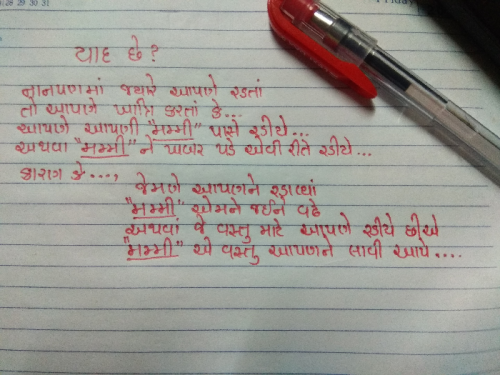 યાદ છે?
નાનપણમાં જ્યારે આપણે રડતાં
તો આપણે ખાત્રિ કરતાં કે...
આપણે આપણી "મમ્મી" પાસે રડીયે...
અથવા "મમ્મી" ને ખબર પડે એવી રીતે રડીયે...
કારણ કે...,
જેમણે આપણને રડાવ્યાં
"મમ્મી" એમને જઈને વઢે
અથવાં જે વસ્તુ માટે આપણે રડીયે છીએ
"મમ્મી" એ વસ્તુ આપણને લાવી આપે....